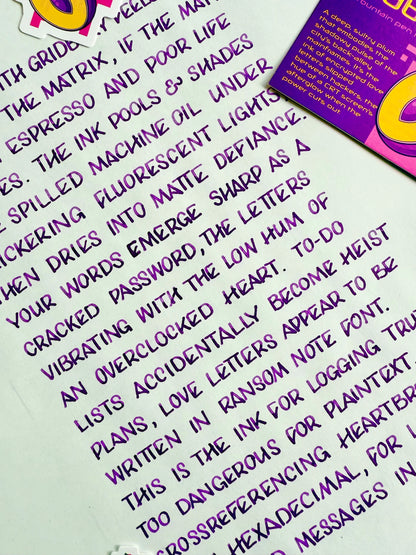 WITH GRIDDE FEELS
THE MATRIX, IF THE MATR
ESPRESSO AND POOR LIFE
ES. THE INK POOLS & SHADES
E SPILLED MACHINE OIL UNDER
ICKERING FLUORESCENT LIGHTS
THEN DRIES INTO MATTE DEFIANCE.
YOUR WORDS EMERGE SHARP AS A
CRACKED PASSWORD, THE LETTERS
VIBRATING WITH THE LOW HUM OF
AN OVERCLOCKED HEART. TO-DO
LISTS ACCIDENTALLY BECOME HEIST
PLANS, LOVE LETTERS APPEAR TO BE
WRITTEN IN RANSOM NOTE FONT.
THIS IS THE INK FOR LOGGING TRU
TOO DANGEROUS FOR PLAINTEXT
CROSSREFERENCING HEARTBR
HEXADECIMAL, FOR
MESSAGES IN
fountain pen
A deep, sultry plum
that embodies the
shadowy pulse of the
city's back-alley
mainframes. The
ink of encrypted love
letters slipped
between hackers, the
hue of a CRT screen's
afterglow when the
power cuts out.